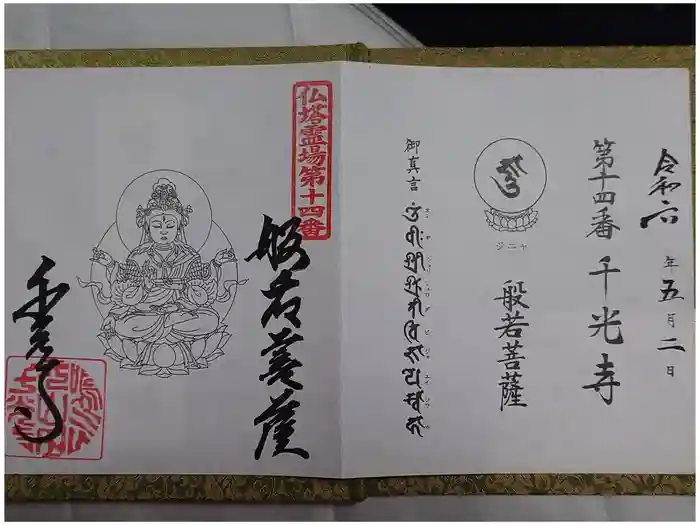 令和六年五月二日
第十四番 千光寺
ジニヤ
般若菩薩
御真言
仏塔霊場第十四番
般若菩薩
千光寺